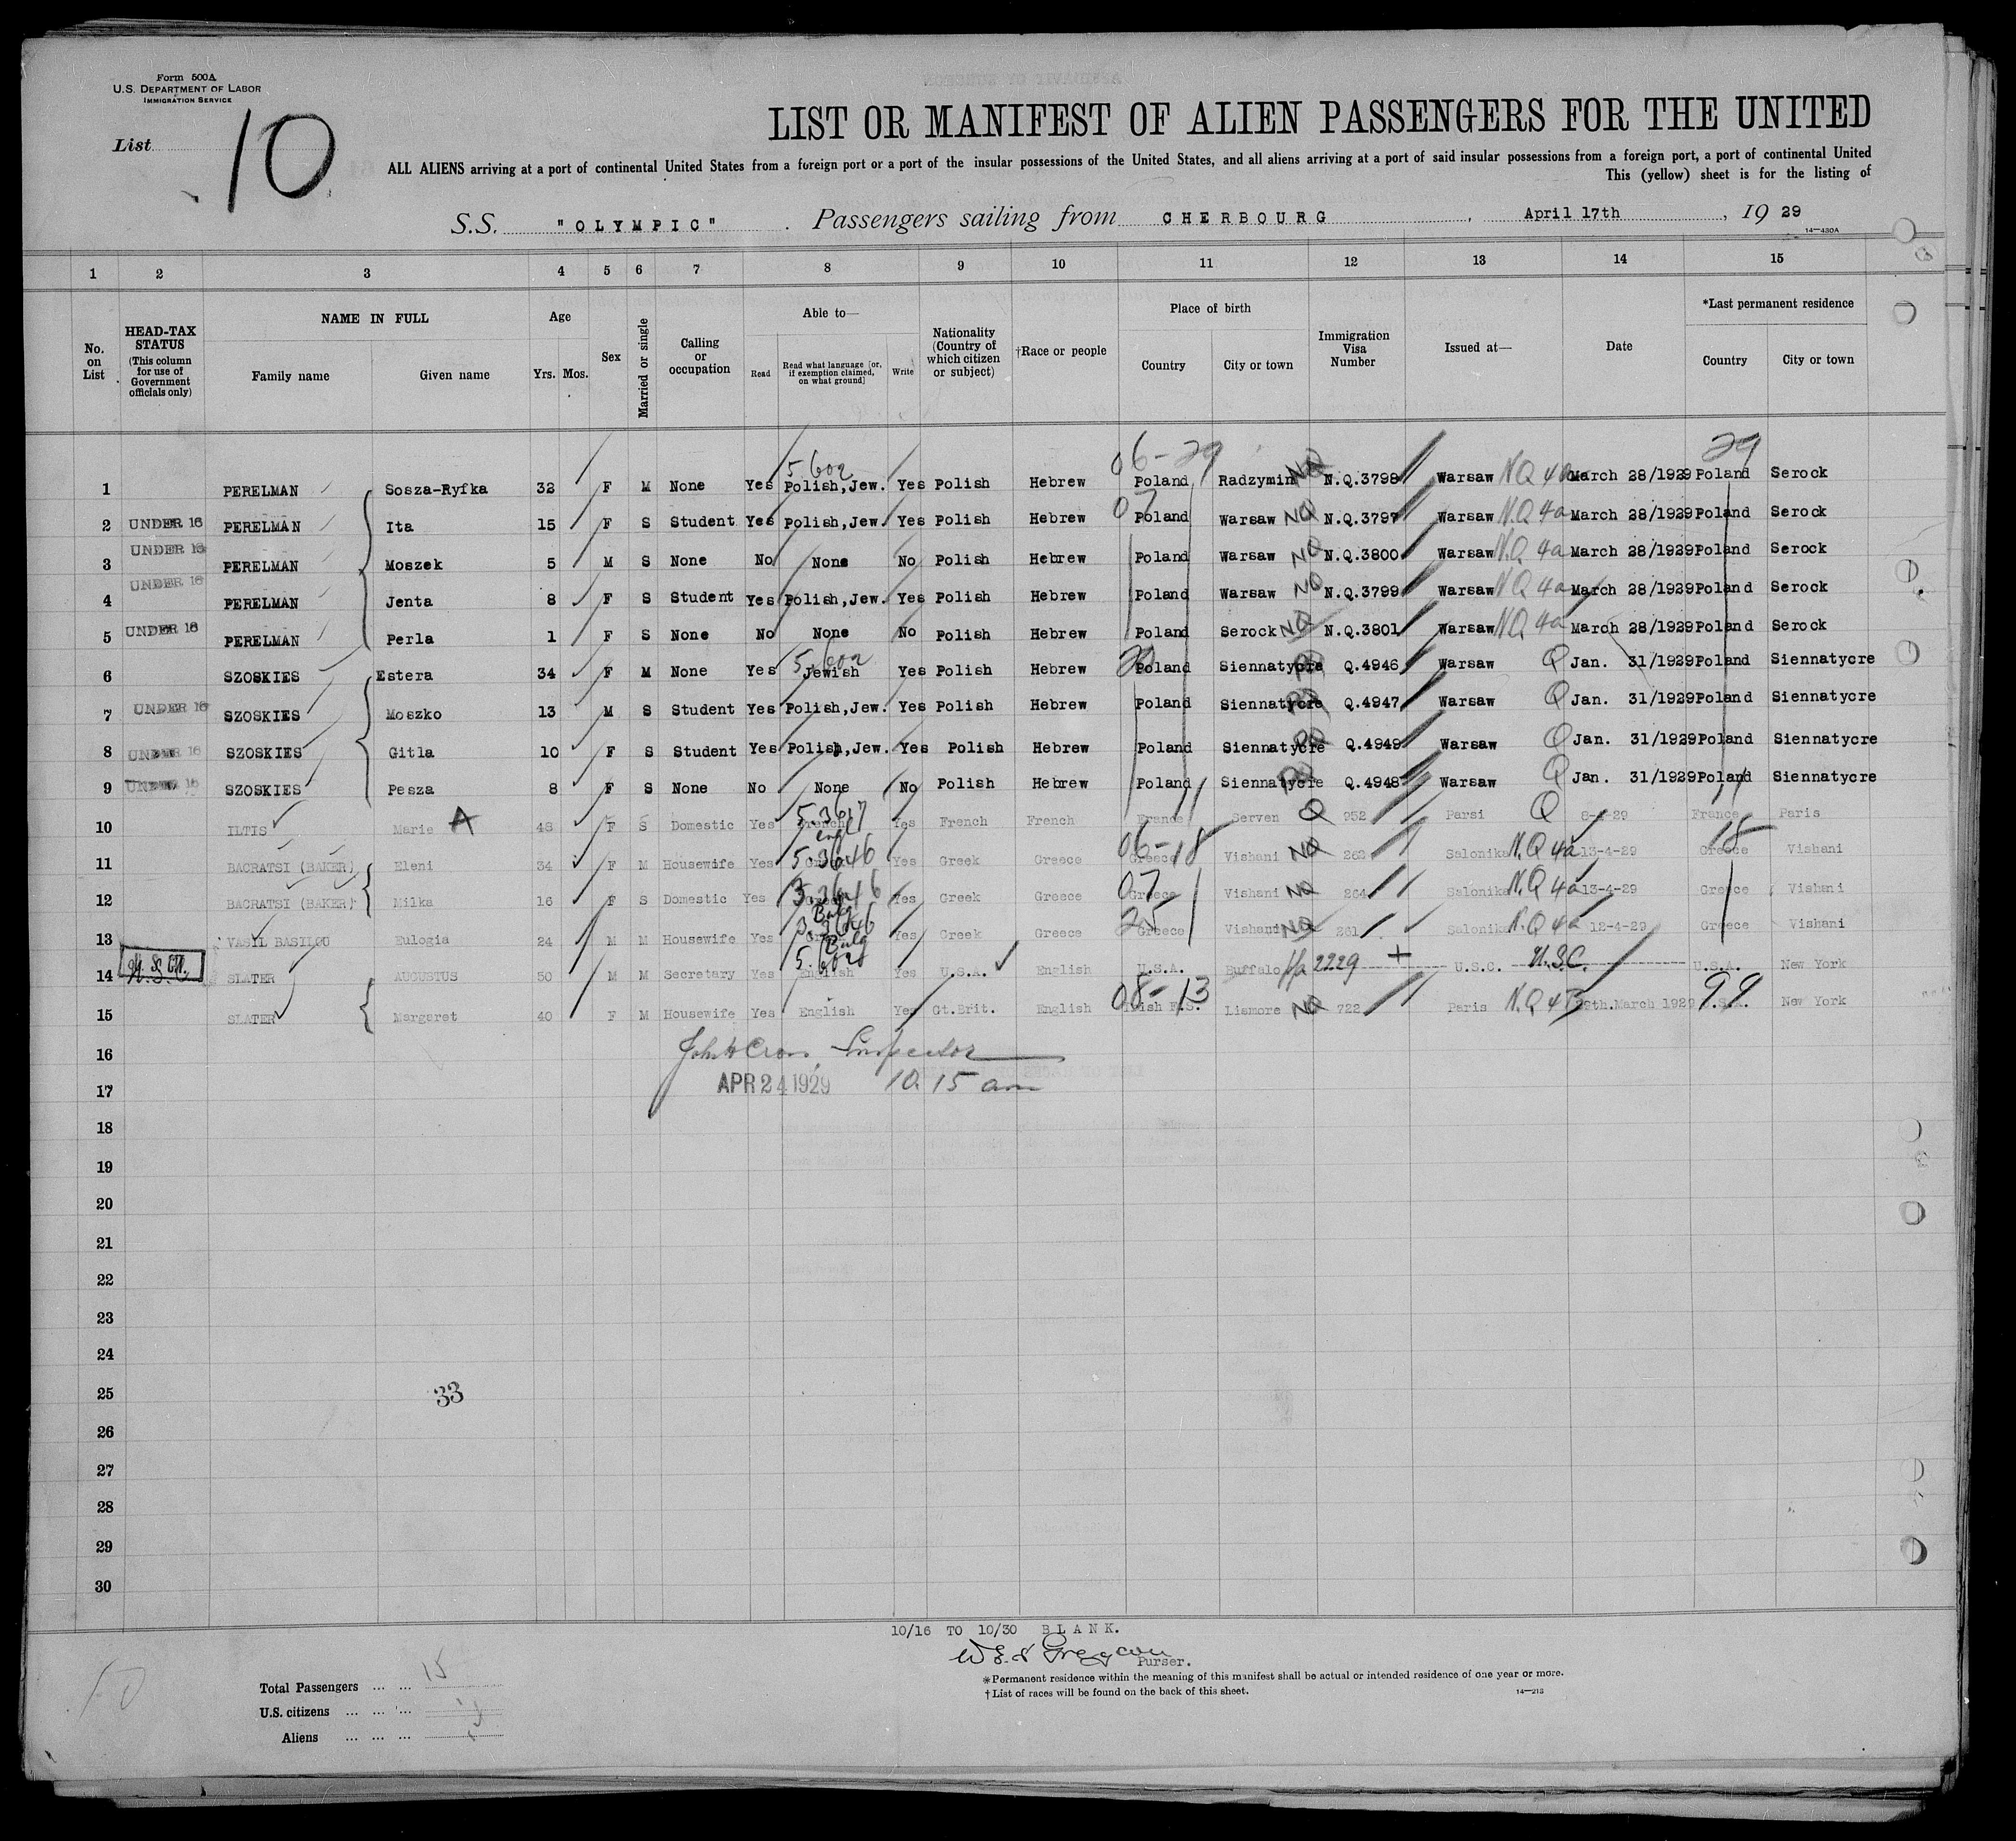 Form 500A
U.S. DEPARTMENT OF LABOR
IMMIGRATION SERVICE
List 10
LIST OR MANIFEST OF ALIEN PASSENGERS FOR THE UNITED
ALL ALIENS arriving at a port of continental United States from a foreign port or a port of the insular possessions of the United States, and all aliens arriving at a port of said insular possessions from a foreign port, a port of continental United
This (yellow) sheet is for the listing of
S.S. "OLYMPIC" . Passengers sailing from CHERBOURG , April 17th , 19 29
14—430A
1 2 3 4 5 6 7 8 9 10 11 12 13 14 15
No. on List
HEAD-TAX STATUS (This column for use of Government officials only)
NAME IN FULL Family name Given name
Age Yrs. Mos.
Sex
Married or single
Calling or occupation
Able to— Read Read what language [or, if exemption claimed, on what ground] Write
Nationality (Country of which citizen or subject)
†Race or people
Place of birth Country City or town
Immigration Visa Number
Issued at—
Date
*Last permanent residence Country City or town
5.602 06-29 29
1 PERELMAN Sosza-Ryfka 32 F M None Yes Polish,Jew. Yes Polish Hebrew Poland Radzymin NQ N.Q.3798 Warsaw NQ 4a March 28/1929 Poland Serock
2 UNDER 16 PERELMAN Ita 15 F S Student Yes Polish,Jew. Yes Polish Hebrew 07 Poland Warsaw NQ N.Q.3797 Warsaw N.Q 4a March 28/1929 Poland Serock
3 UNDER 16 PERELMAN Moszek 5 M S None No None No Polish Hebrew Poland Warsaw NQ N.Q.3800 Warsaw N.Q 4a March 28/1929 Poland Serock
4 UNDER 16 PERELMAN Jenta 8 F S Student Yes Polish,Jew. Yes Polish Hebrew Poland Warsaw NQ N.Q.3799 Warsaw N.Q 4a March 28/1929 Poland Serock
5 UNDER 16 PERELMAN Perla 1 F S None No None No Polish Hebrew Poland Serock NQ N.Q.3801 Warsaw NQ 4a March 28/1929 Poland Serock
6 SZOSKIES Estera 34 F M None Yes 5.602 Jewish Yes Polish Hebrew Poland Siennatycre Q.4946 Warsaw Q Jan. 31/1929 Poland Siennatycre
7 UNDER 16 SZOSKIES Moszko 13 M S Student Yes Polish,Jew. Yes Polish Hebrew Poland Siennatycre Q.4947 Warsaw Q Jan. 31/1929 Poland Siennatycre
8 UNDER 16 SZOSKIES Gitla 10 F S Student Yes Polish,Jew. Yes Polish Hebrew Poland Siennatycre Q.4949 Warsaw Q Jan. 31/1929 Poland Siennatycre
9 UNDER 16 SZOSKIES Pesza 8 F S None No None No Polish Hebrew Poland Siennatycre Q.4948 Warsaw Q Jan. 31/1929 Poland Siennatycre
10 ILTIS Marie A 48 F S Domestic Yes French Yes French French France Serven Q 952 Parsi Q 29 France Paris
11 BACRATSI (BAKER) Eleni 34 F M Housewife Yes Yes Greek Greece 06-18 Greece Vishani NQ 262 Salonika N.Q 4a 13-4-29 18 Greece Vishani
12 BACRATSI (BAKER) Milka 16 F S Domestic Yes Yes Greek Greece 07 Greece Vishani NQ 264 Salonika N.Q 4a 13-4-29 Greece Vishani
13 VASIL BASILGU Eulogia 24 M M Housewife Yes Bulg Yes Greek Greece 25 Greece Vishani NQ 261 Salonika N.Q 4a 12-4-29 Greece Vishani
14 SLATER AUGUSTUS 50 M M Secretary Yes English Yes U.S.A. English U.S.A. Buffalo 2229 U.S.C. U.S.C. U.S.A. New York
15 SLATER Margaret 40 F M Housewife Yes English Yes Gt.Brit. English 08-13 Irish F.S. Lismore NQ 722 Paris N.Q 4B March 1929 99 New York
16 Inspector
17 APR 24 1929 10.15 am
18
19
20
21
22
23
24
25 33
26
27
28
29
30
10/16 TO 10/30 BLANK.
Purser.
*Permanent residence within the meaning of this manifest shall be actual or intended residence of one year or more.
†List of races will be found on the back of this sheet. 14—213
10
Total Passengers ... ... 15
U.S. citizens ... ... ...
Aliens ... ... ...